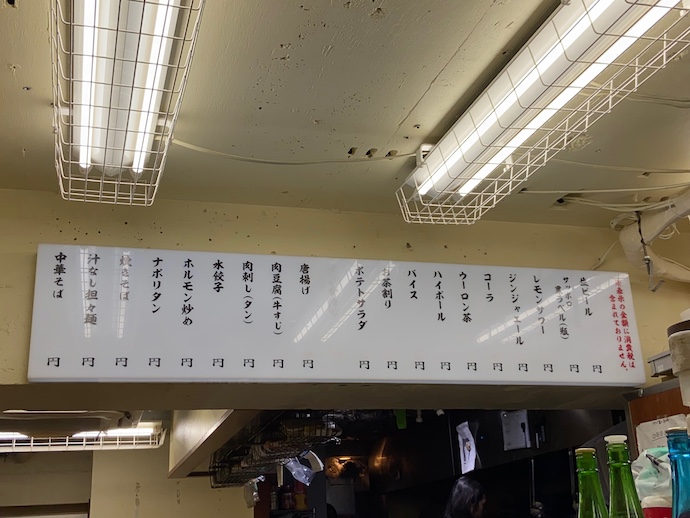 ※表示の金額に消費税は
含まれておりません。
生ビール 円
サッポロ
赤ラベル(瓶) 円
レモンサワー 円
ジンジャエール 円
コーラ 円
ウーロン茶 円
ハイボール 円
バイス 円
お茶割り 円
ポテトサラダ 円
唐揚げ 円
肉豆腐(牛すじ) 円
肉刺し(タン) 円
水餃子 円
ホルモン炒め 円
ナポリタン 円
焼きそば 円
汁なし担々麺 円
中華そば 円